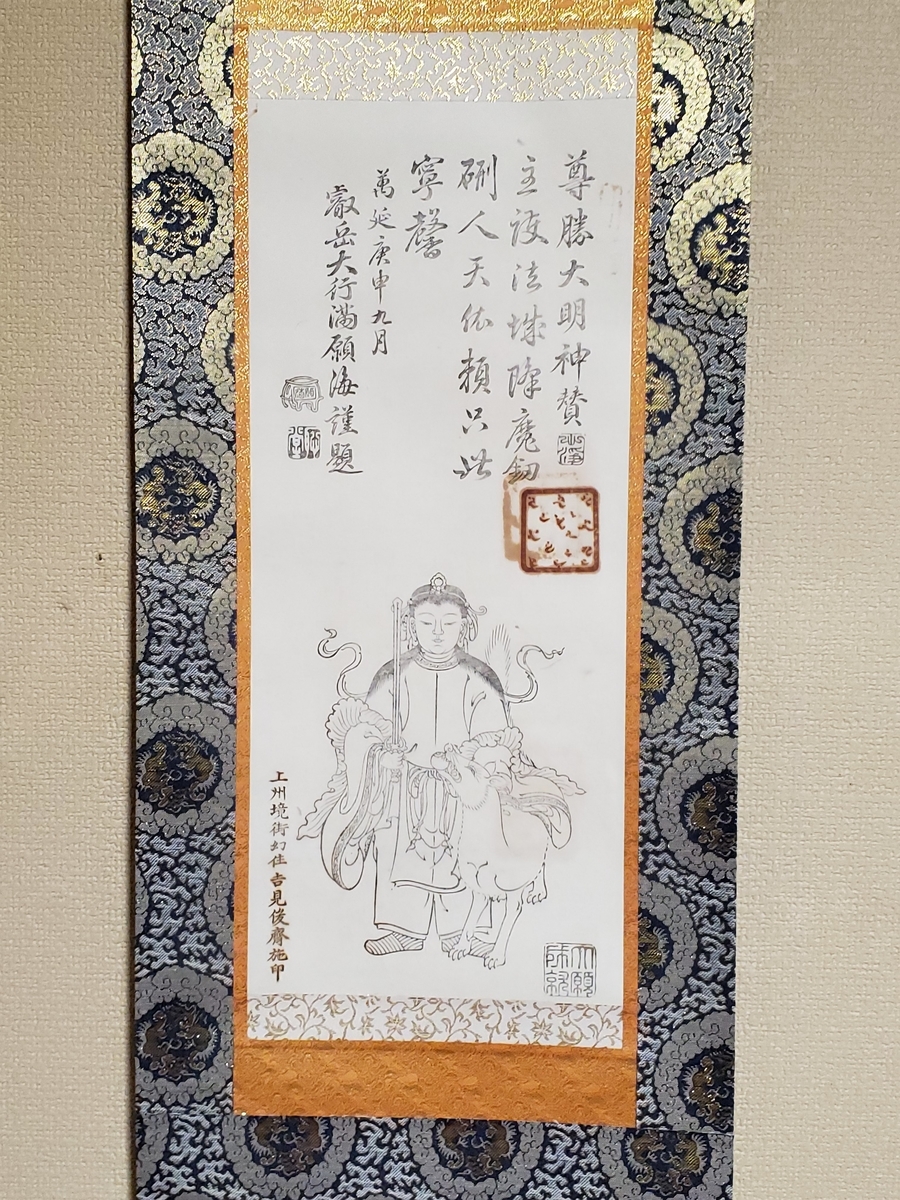 尊勝大明神賛
主護法城降魔剱
刪人天依頼只此
寧馨
萬延庚申九月
叡岳大行満願海謹題
上州境街幻住吉見後齋施印
大願
成就